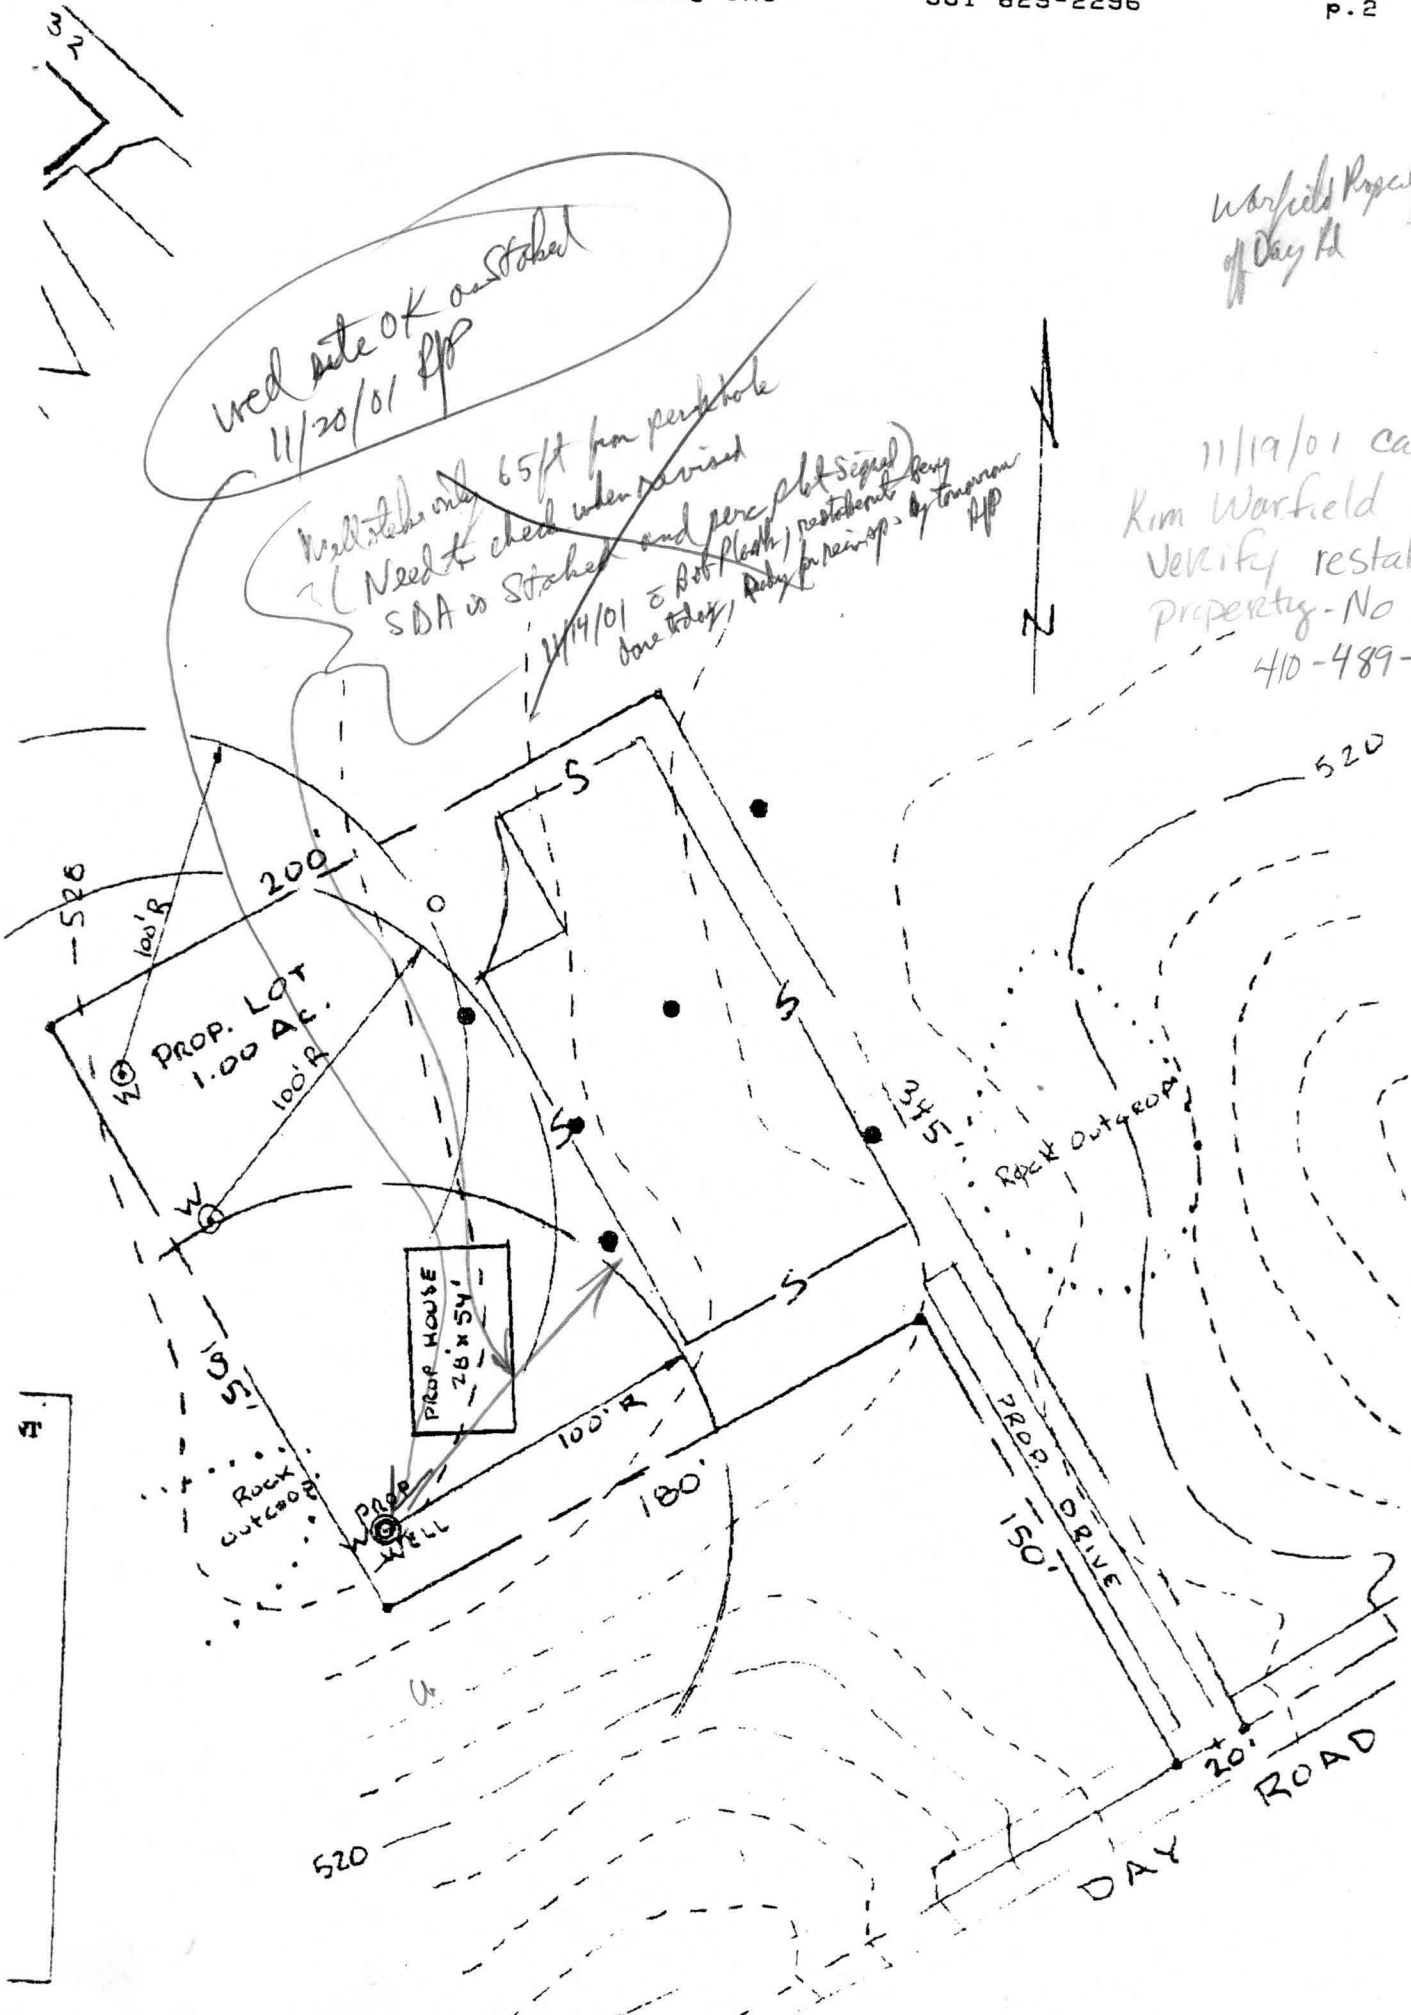 301 829-2296
p.2
32
Warfield
off Day Rd
well site OK as staked
11/20/01 RJP
Well stake only 65 ft from perk hole
(Need to check when revised
SDA is Staked and perc plat signed)
11/14/01 Bob
done today, by tomorrow
11/19/01
Kim Warfield
Verify
property - No
410-489-
N
520
528
200'
100'R
PROP. LOT
1.00 AC.
100'R
W
W
S
S
S
S
345'
ROCK OUTCROP
PROP HOUSE
28'X54'
195'
ROCK
OUTCROP
100'R
PROP
W
WELL
180'
PROP. DRIVE
150'
20'
DAY ROAD
520